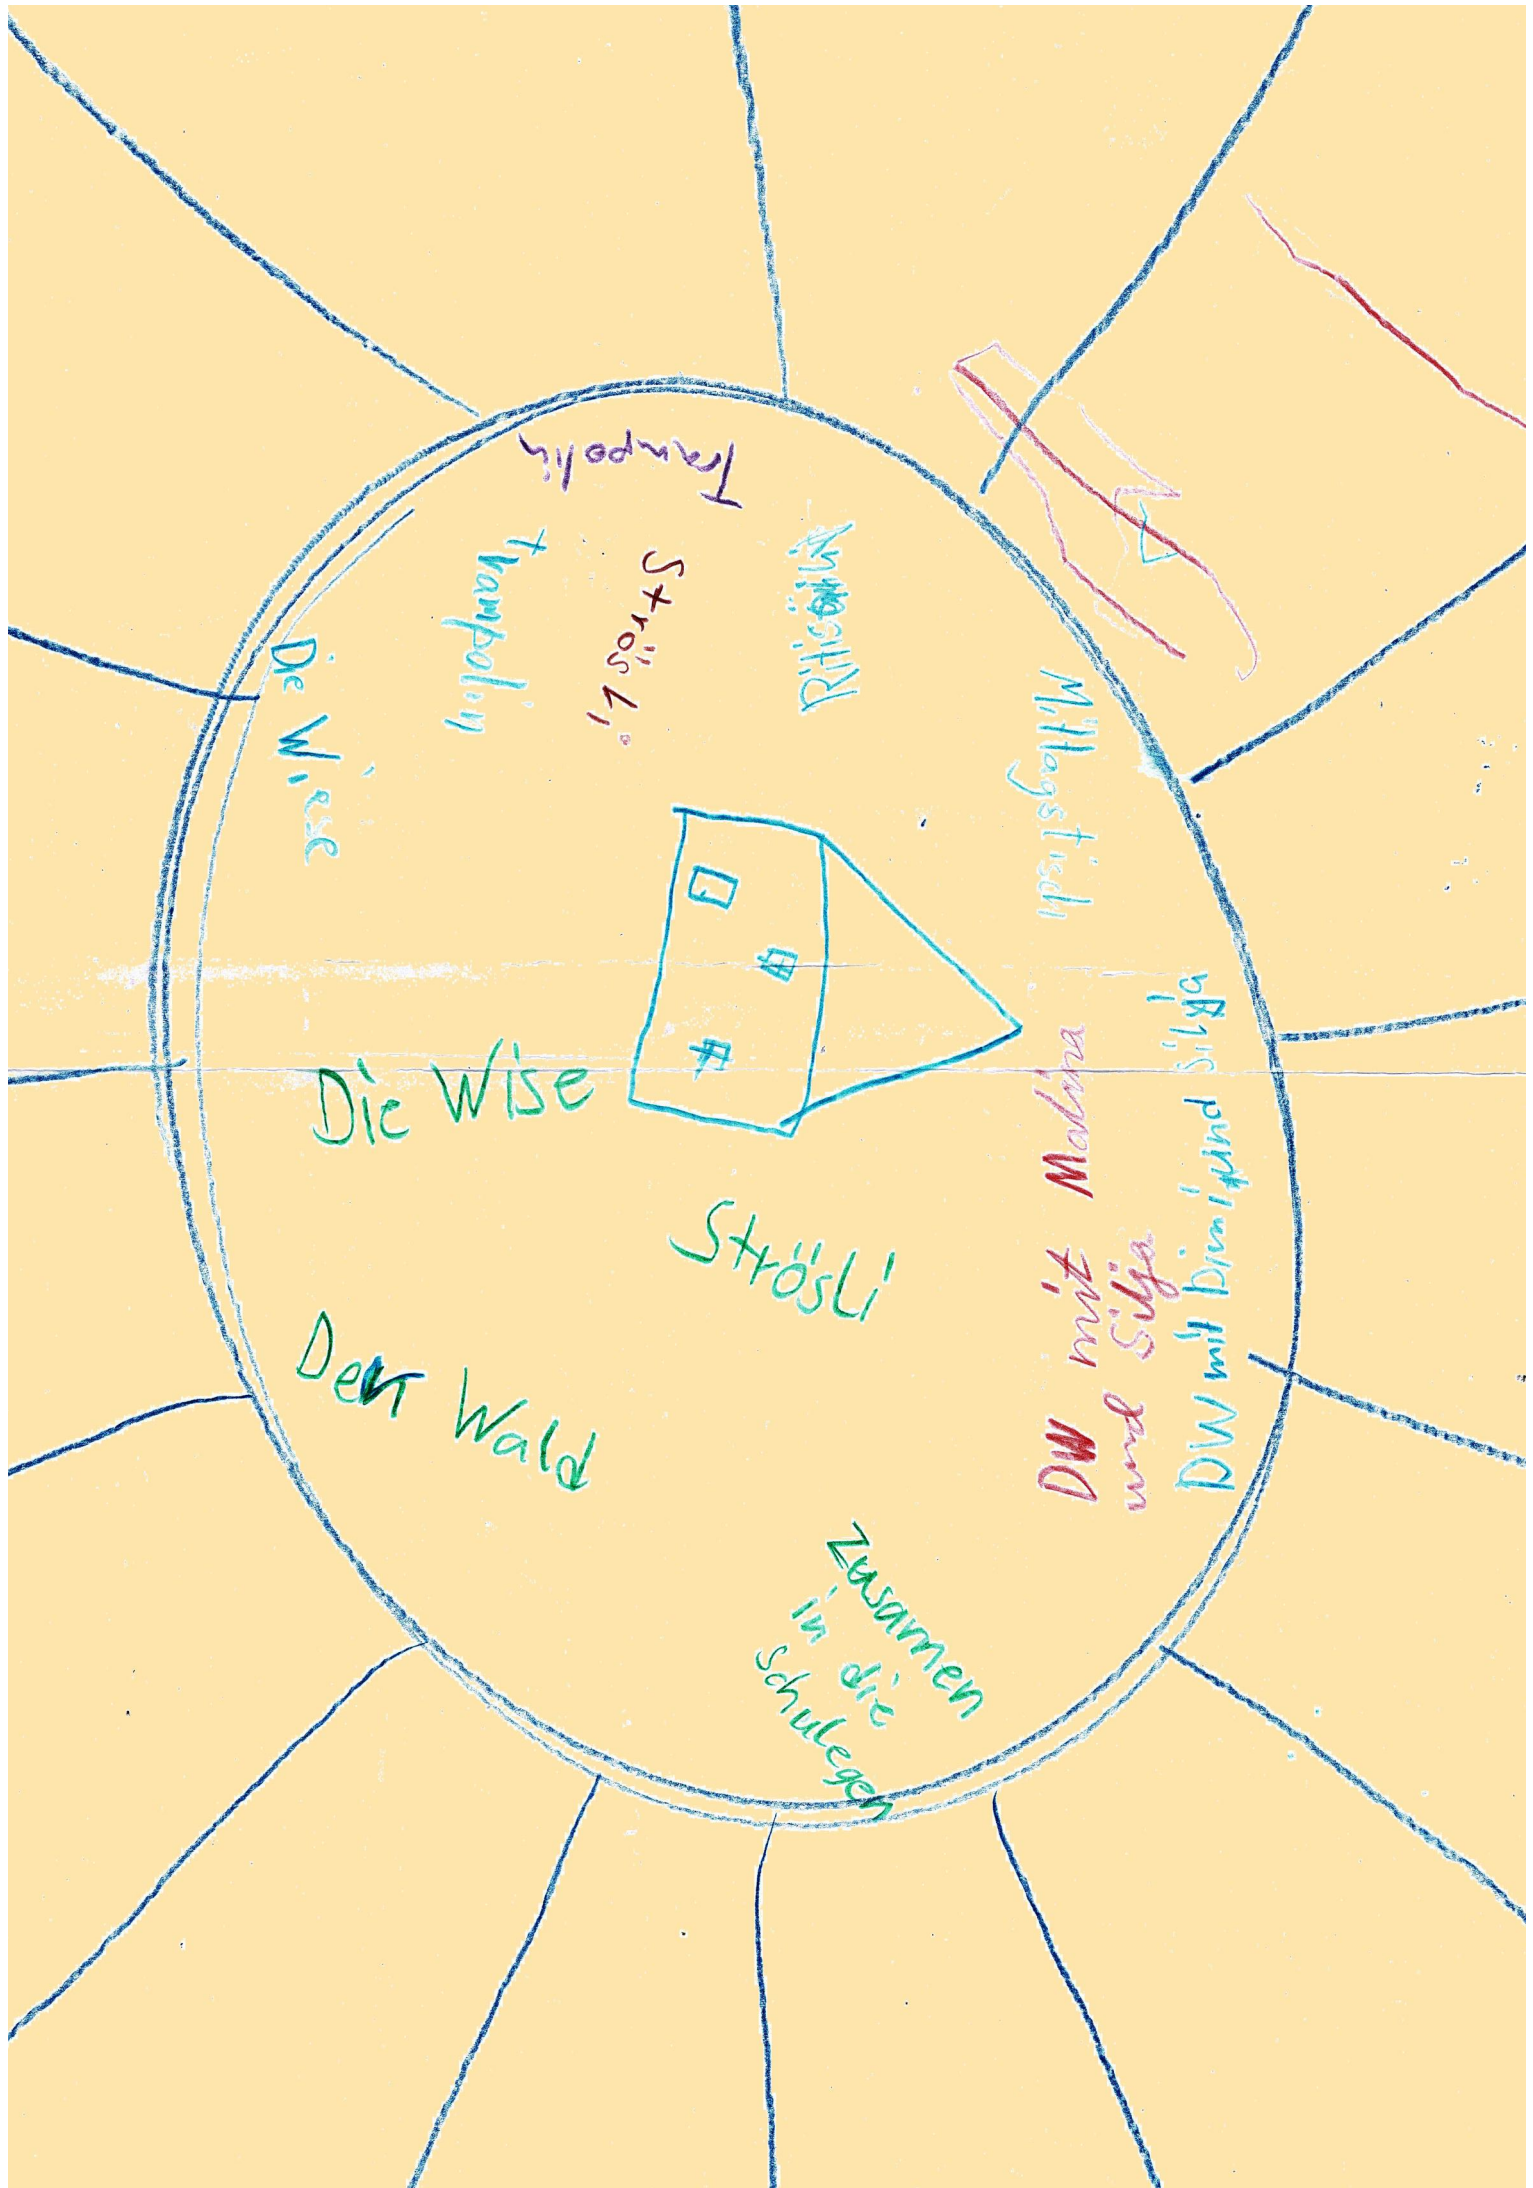 Trampolin
trampolin
Strösli
Die Wiese
Mittagstisch
Die Wise
Strösli
Den Wald
DW mit Malina
und Silja
DW mit Dimi und Silja
zusamen
in die
schulegen